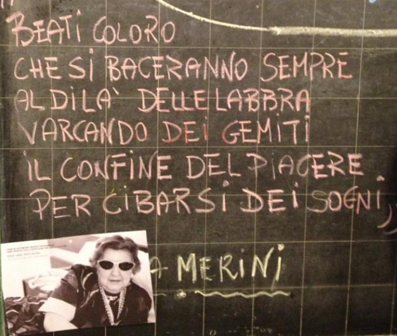 BEATI COLORO
CHE SI BACERANNO SEMPRE
AL DI LA' DELLE LABBRA
VARCANDO DEI GEMITI
IL CONFINE DEL PIACERE
PER CIBARSI DEI SOGNI
A MERINI